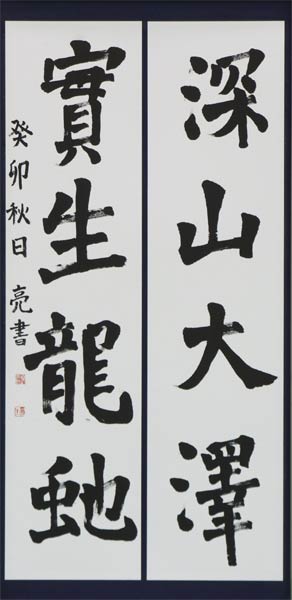 深山大澤
實生龍虵
癸卯秋日 亮書